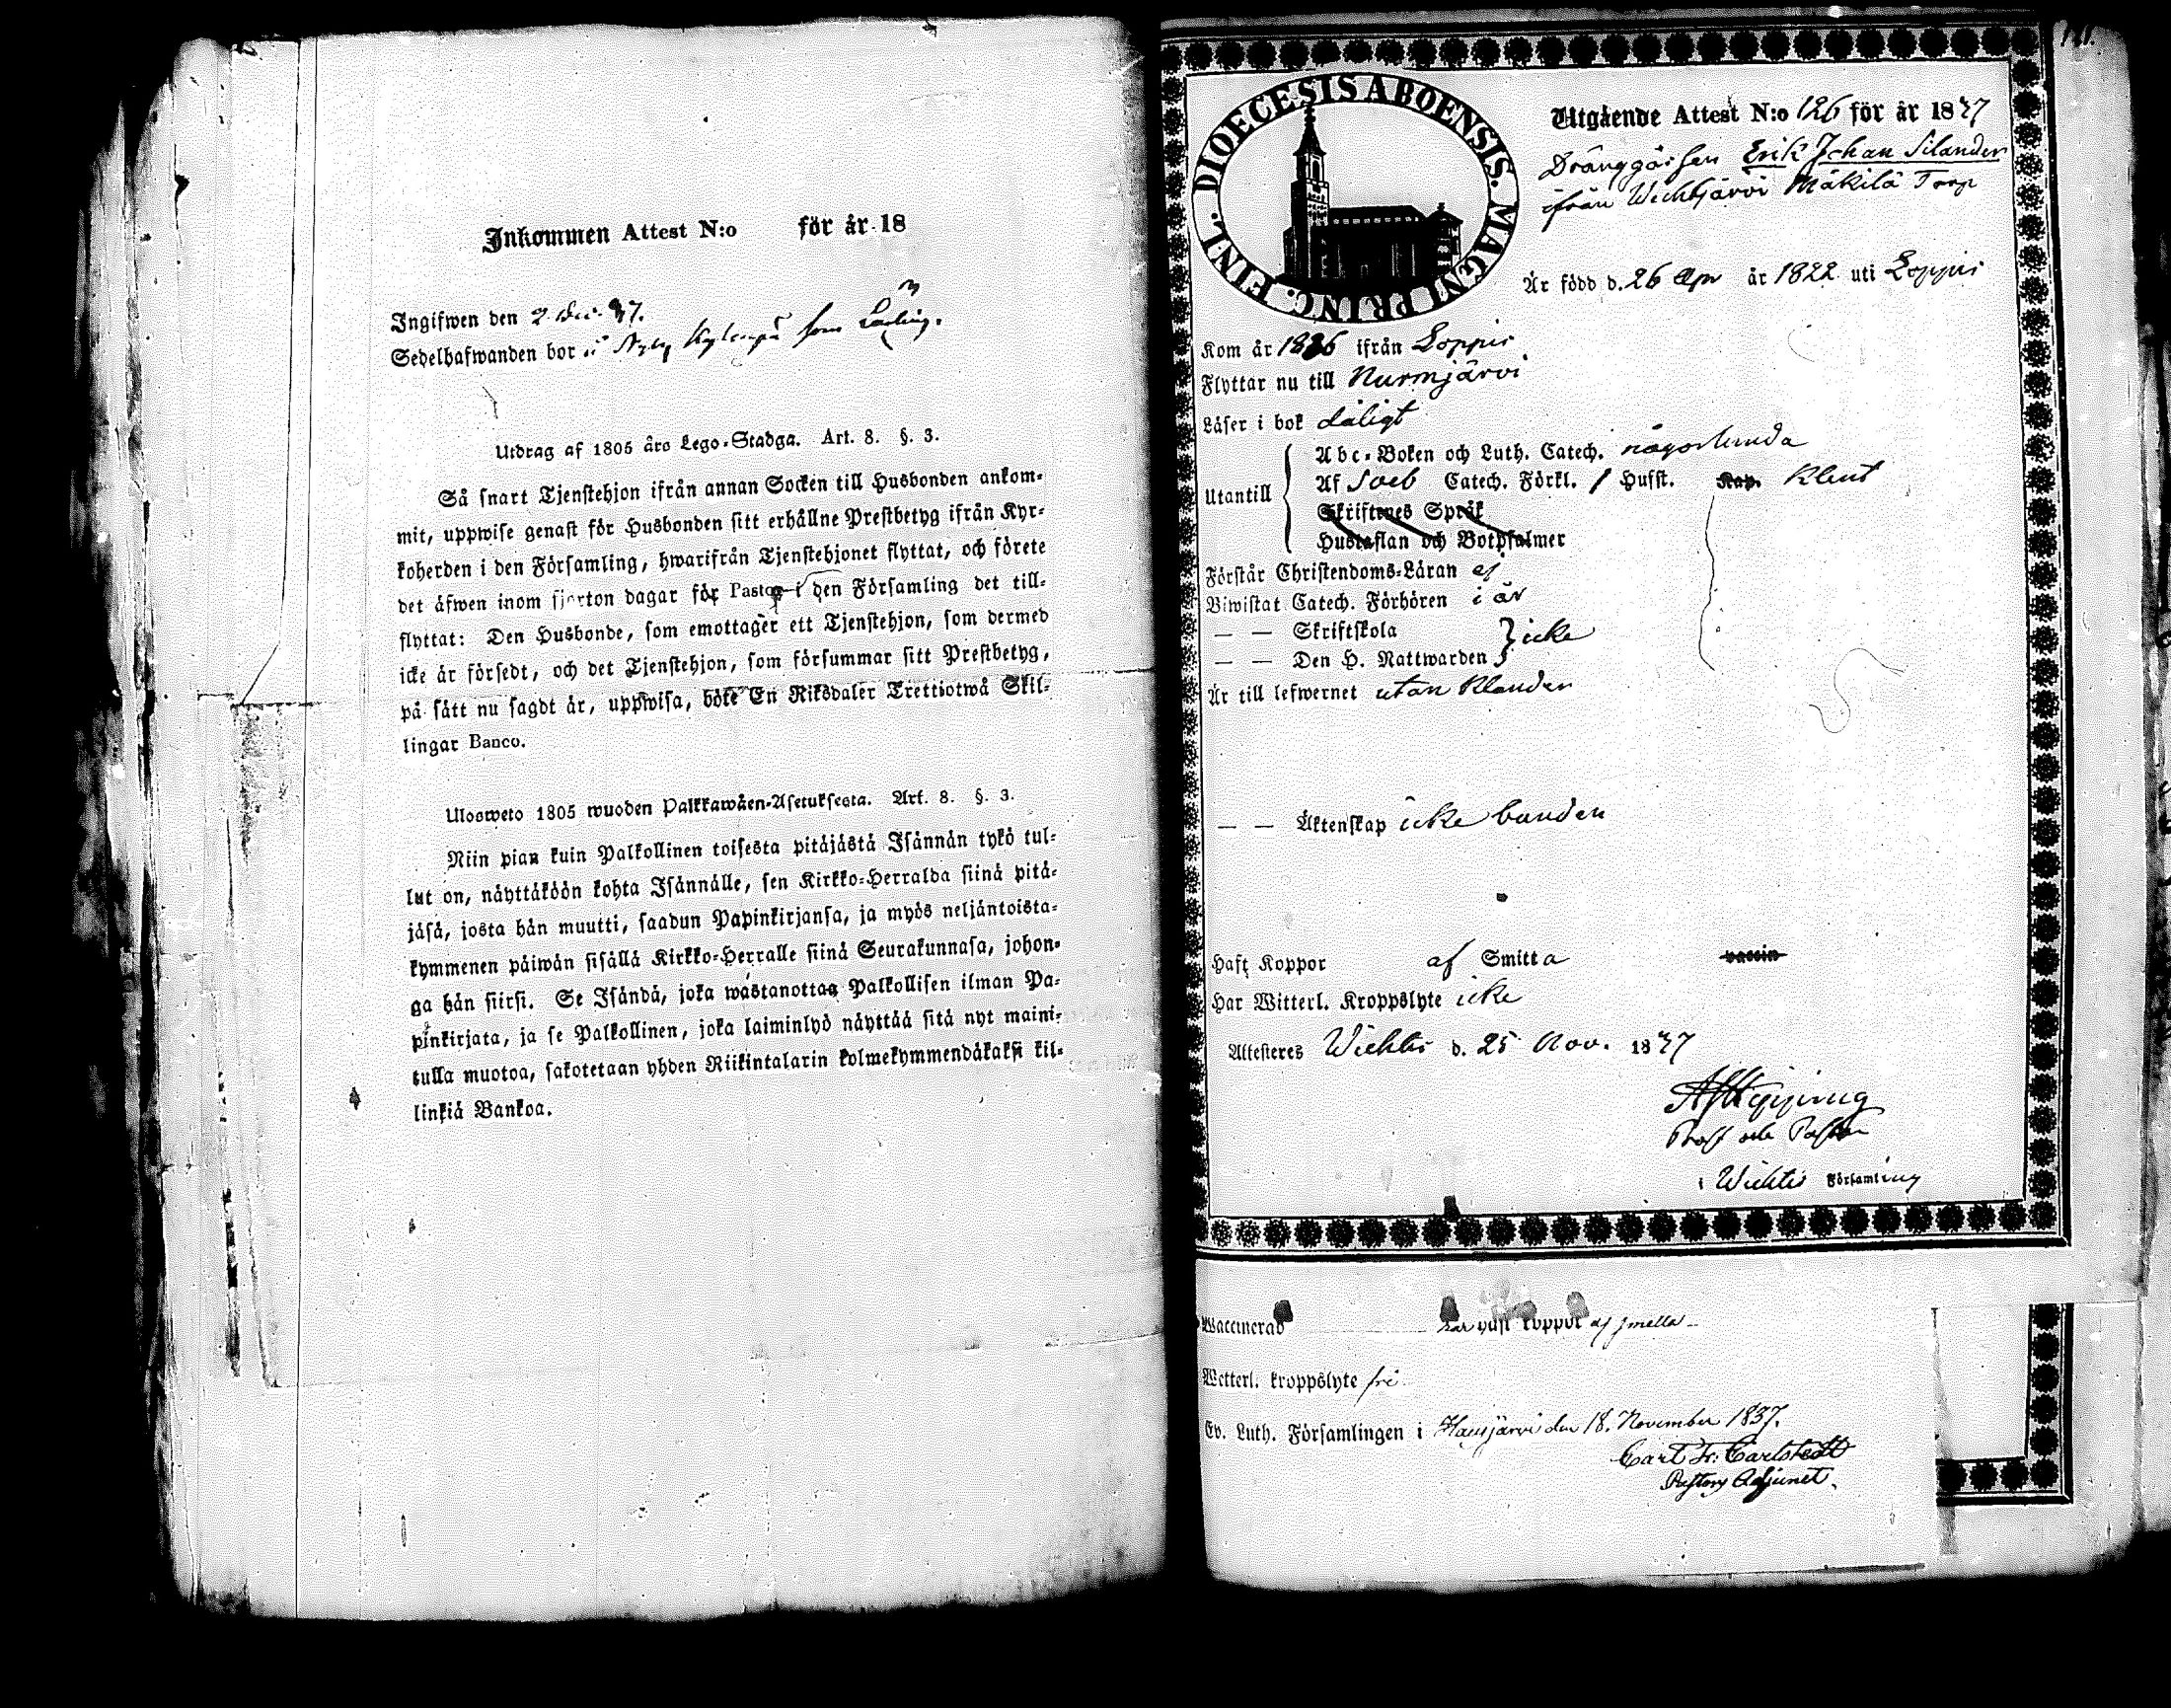 Inkommen Attest N:o för år 18
Ingifwen den 2 Dec. 37.
Sedelhafwanden bor i Kylenpä som Lärling.
Utdrag af 1805 års Lego-Stadga. Art. 8. §. 3.
Så snart Tjenstehjon ifrån annan Socken till Husbonden ankom-
mit, uppwise genast för Husbonden sitt erhållne Prestbetyg ifrån Kyr-
koherden i den Församling, hwarifrån Tjenstehjonet flyttat, och förete
det äfwen inom fjorton dagar för Pastor i den Församling det till-
flyttat: Den Husbonde, som emottager ett Tjenstehjon, som dermed
icke är försedt, och det Tjenstehjon, som försummar sitt Prestbetyg,
på sätt nu sagdt är, uppwisa, böte En Riksdaler Trettiotwå Skil-
lingar Banco.
Ulosweto 1805 wuoden Palkkawäen-Asetuksesta. Art. 8. §. 3.
Niin pian kuin Palkollinen toisesta pitäjästä Isännän tykö tul-
lut on, näyttäköön kohta Isännälle, sen Kirkko-Herralda siinä pitä-
jäsä, josta hän muutti, saadun Papinkirjansa, ja myös neljäntoista-
kymmenen päiwän sisällä Kirkko-Herralle siinä Seurakunnasa, johon-
ga hän siirsi. Se Isändä, joka wastanottaa Palkollisen ilman Pa-
pinkirjata, ja se Palkollinen, joka laiminlyö näyttää sitä nyt maini-
tulla muotoa, sakotetaan yhden Riikintalarin kolmekymmendäkaksi kil-
linkiä Bankoa.
121.
DIOECESIS ABOENSIS. MAGNI PRINC. FINL.
Utgående Attest N:o 126 för år 1837
Dränggåssen Erik Johan Silander
ifrån Wichtjärvi Mäkilä Torp
Är född d. 26 Apr år 1822 uti Loppis
Kom år 1836 ifrån Loppis
Flyttar nu till Nurmjärvi
Läser i bok dåligt
Utantill
Abc-Boken och Luth. Catech. någorlunda
Af Sveb Catech. Förkl. 1 Hufst. Kap. klent
Skriftenes Språk
Hustaflan och Botpsalmer
Förstår Christendoms-Läran ej
Biwistat Catech. Förhören i år
— — Skriftskola
— — Den H. Nattwarden } icke
Är till lefwernet utan klander
— — Äktenskap icke bunden
Haft Koppor af Smitta vaccin
Har Witterl. Kroppslyte icke
Attesteres Wichtis d. 25 Nov. 1837
Prost och Pastor
i Wichtis Församling
Waccinerad har haft koppor af smetta
Wetterl. kroppslyte fri
Ev. Luth. Församlingen i Hausjärvi den 18. November 1837.
Carl Fr: Carlstedt
Pastors Adjunct.